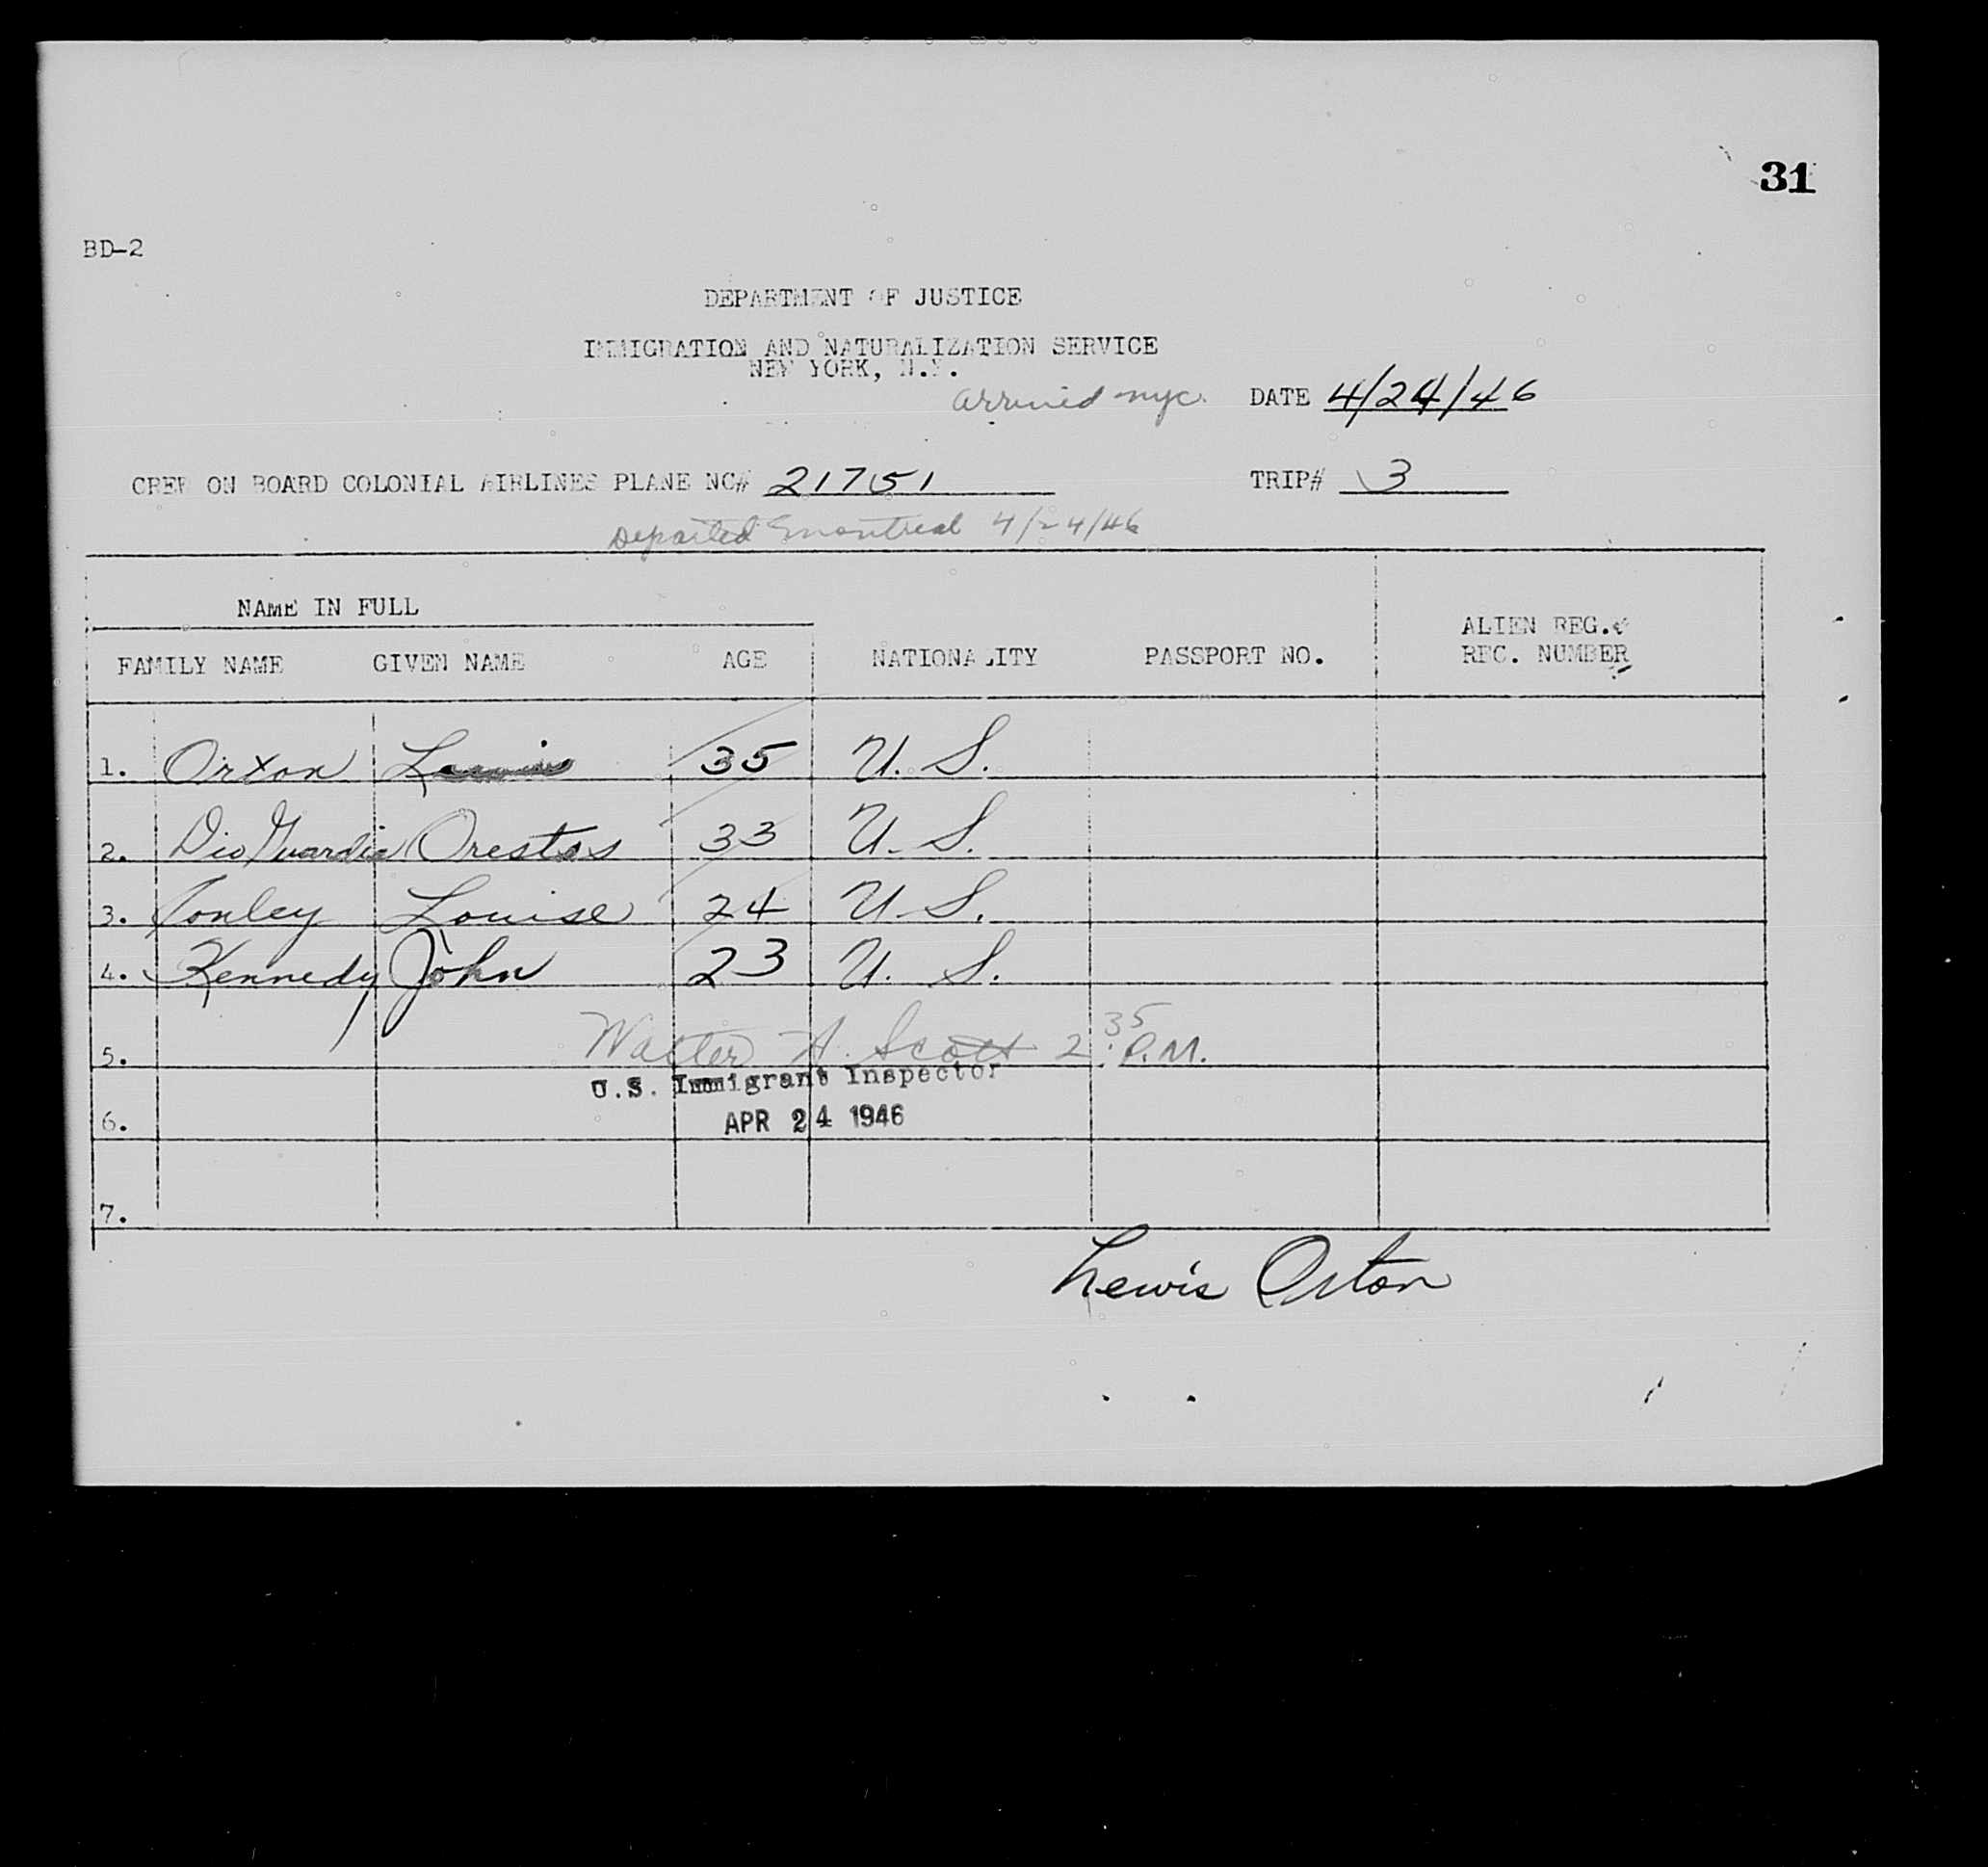 31
BD-2
DEPARTMENT OF JUSTICE
IMMIGRATION AND NATURALIZATION SERVICE
NEW YORK, N.Y.
arrived nyc. DATE 4/24/46
CREW ON BOARD COLONIAL AIRLINES PLANE NC# 21751 TRIP# 3
Departed Montreal 4/24/46
NAME IN FULL
FAMILY NAME GIVEN NAME AGE NATIONALITY PASSPORT NO. ALIEN REG.
REC. NUMBER
1. Orxon 35 U. S.
2. Dio Guardia Orestes 33 U. S.
3. Conley Louise 24 U. S.
4. Kennedy John 23 U. S.
5. Walter A. Scott 2:35 P.M.
U.S. Immigrant Inspector
6. APR 24 1946
7.
Lewis Orton